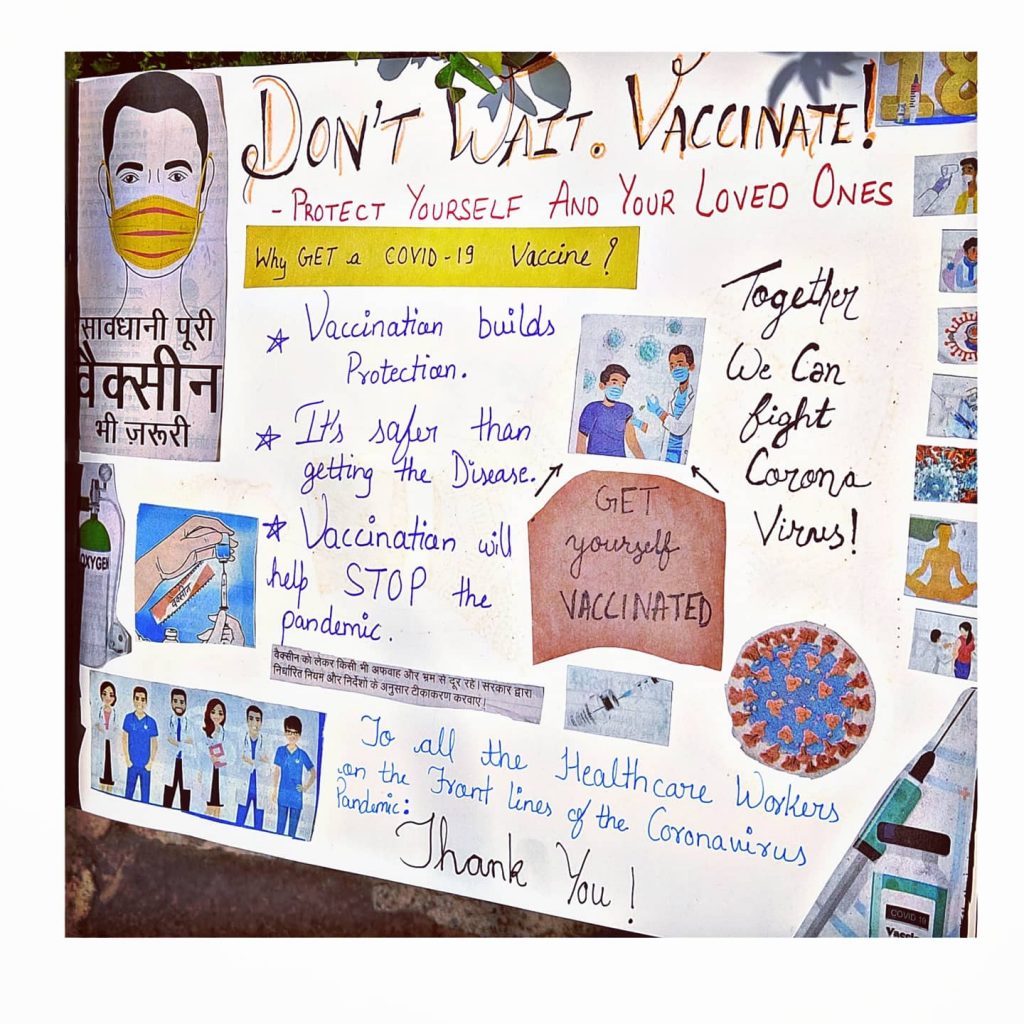 DON'T WAIT. VACCINATE!
18
- PROTECT YOURSELF AND YOUR LOVED ONES
Why GET a COVID-19 Vaccine?
सावधानी पूरी
वैक्सीन
भी ज़रूरी
☆ Vaccination builds
Protection.
☆ It's safer than
getting the Disease.
☆ Vaccination will
help STOP the
pandemic.
Together
We Can
fight
Corona
Virus!
GET
yourself
VACCINATED
OXYGEN
वैक्सीन
वैक्सीन को लेकर किसी भी अफवाह और भ्रम से दूर रहे। सरकार द्वारा
निर्धारित नियम और निर्देशों के अनुसार टीकाकरण करवाएं।
To all the Healthcare Workers
on the Front lines of the Coronavirus
Pandemic:
Thank You!
COVID 19